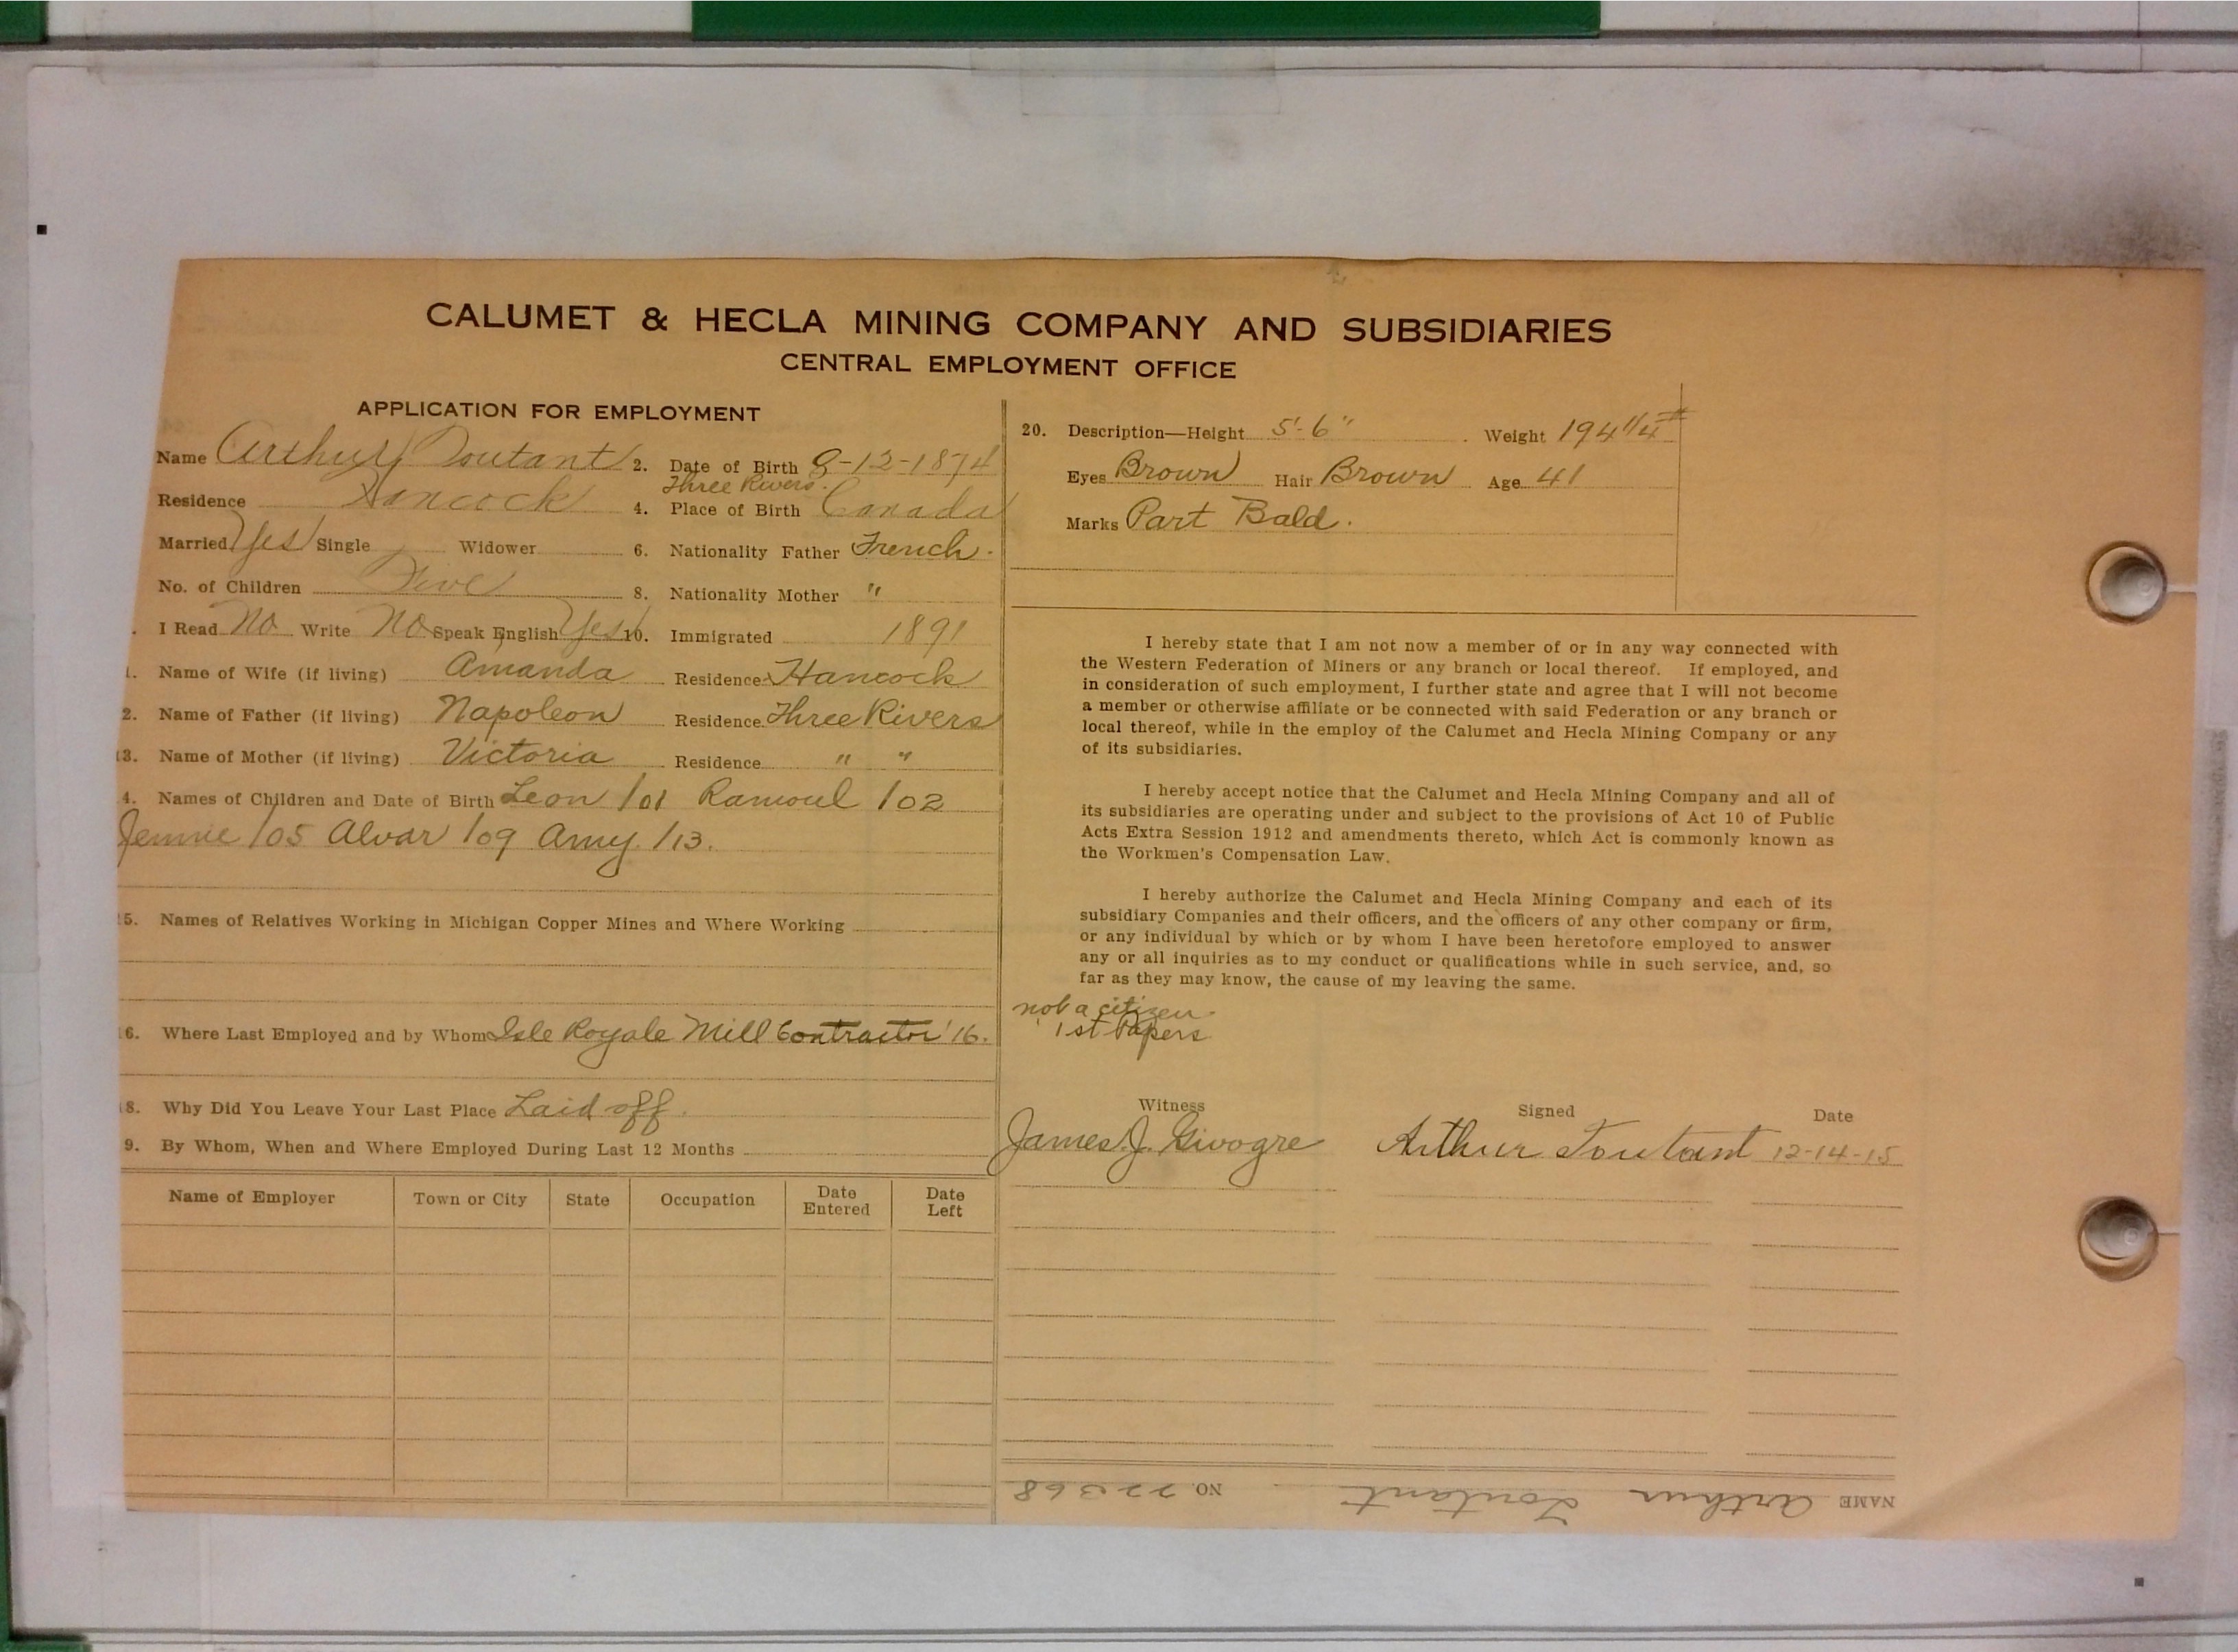 CALUMET & HECLA MINING COMPANY AND SUBSIDIARIES
CENTRAL EMPLOYMENT OFFICE
APPLICATION FOR EMPLOYMENT
Name Arthur Toutant 2. Date of Birth 8-12-1874
Three Rivers.
Residence Hancock 4. Place of Birth Canada
Married Yes Single Widower 6. Nationality Father French.
No. of Children Five 8. Nationality Mother "
. I Read No Write No Speak English Yes 10. Immigrated 1891
1. Name of Wife (if living) Amanda Residence Hancock
2. Name of Father (if living) Napoleon Residence Three Rivers
13. Name of Mother (if living) Victoria Residence " "
4. Names of Children and Date of Birth Leon /01 Ramoul /02
Jennie /05 Alvar /09 Amy /13.
15. Names of Relatives Working in Michigan Copper Mines and Where Working
16. Where Last Employed and by Whom Isle Royale Mill Contractor '16.
18. Why Did You Leave Your Last Place Laid off.
9. By Whom, When and Where Employed During Last 12 Months
Name of Employer Town or City State Occupation Date Entered Date Left
20. Description—Height 5'-6" Weight 194 1/4 #
Eyes Brown Hair Brown Age 41
Marks Part Bald.
I hereby state that I am not now a member of or in any way connected with
the Western Federation of Miners or any branch or local thereof. If employed, and
in consideration of such employment, I further state and agree that I will not become
a member or otherwise affiliate or be connected with said Federation or any branch or
local thereof, while in the employ of the Calumet and Hecla Mining Company or any
of its subsidiaries.
I hereby accept notice that the Calumet and Hecla Mining Company and all of
its subsidiaries are operating under and subject to the provisions of Act 10 of Public
Acts Extra Session 1912 and amendments thereto, which Act is commonly known as
the Workmen's Compensation Law.
I hereby authorize the Calumet and Hecla Mining Company and each of its
subsidiary Companies and their officers, and the officers of any other company or firm,
or any individual by which or by whom I have been heretofore employed to answer
any or all inquiries as to my conduct or qualifications while in such service, and, so
far as they may know, the cause of my leaving the same.
not a citizen.
1st Papers
Witness Signed Date
James J. Givogre Arthur Toutant 12-14-15
NAME Arthur Toutant NO. 22368